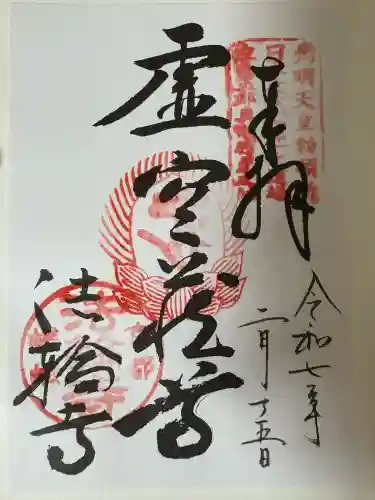 奉拝
令和七年
二月十五日
虚空蔵尊
法輪寺